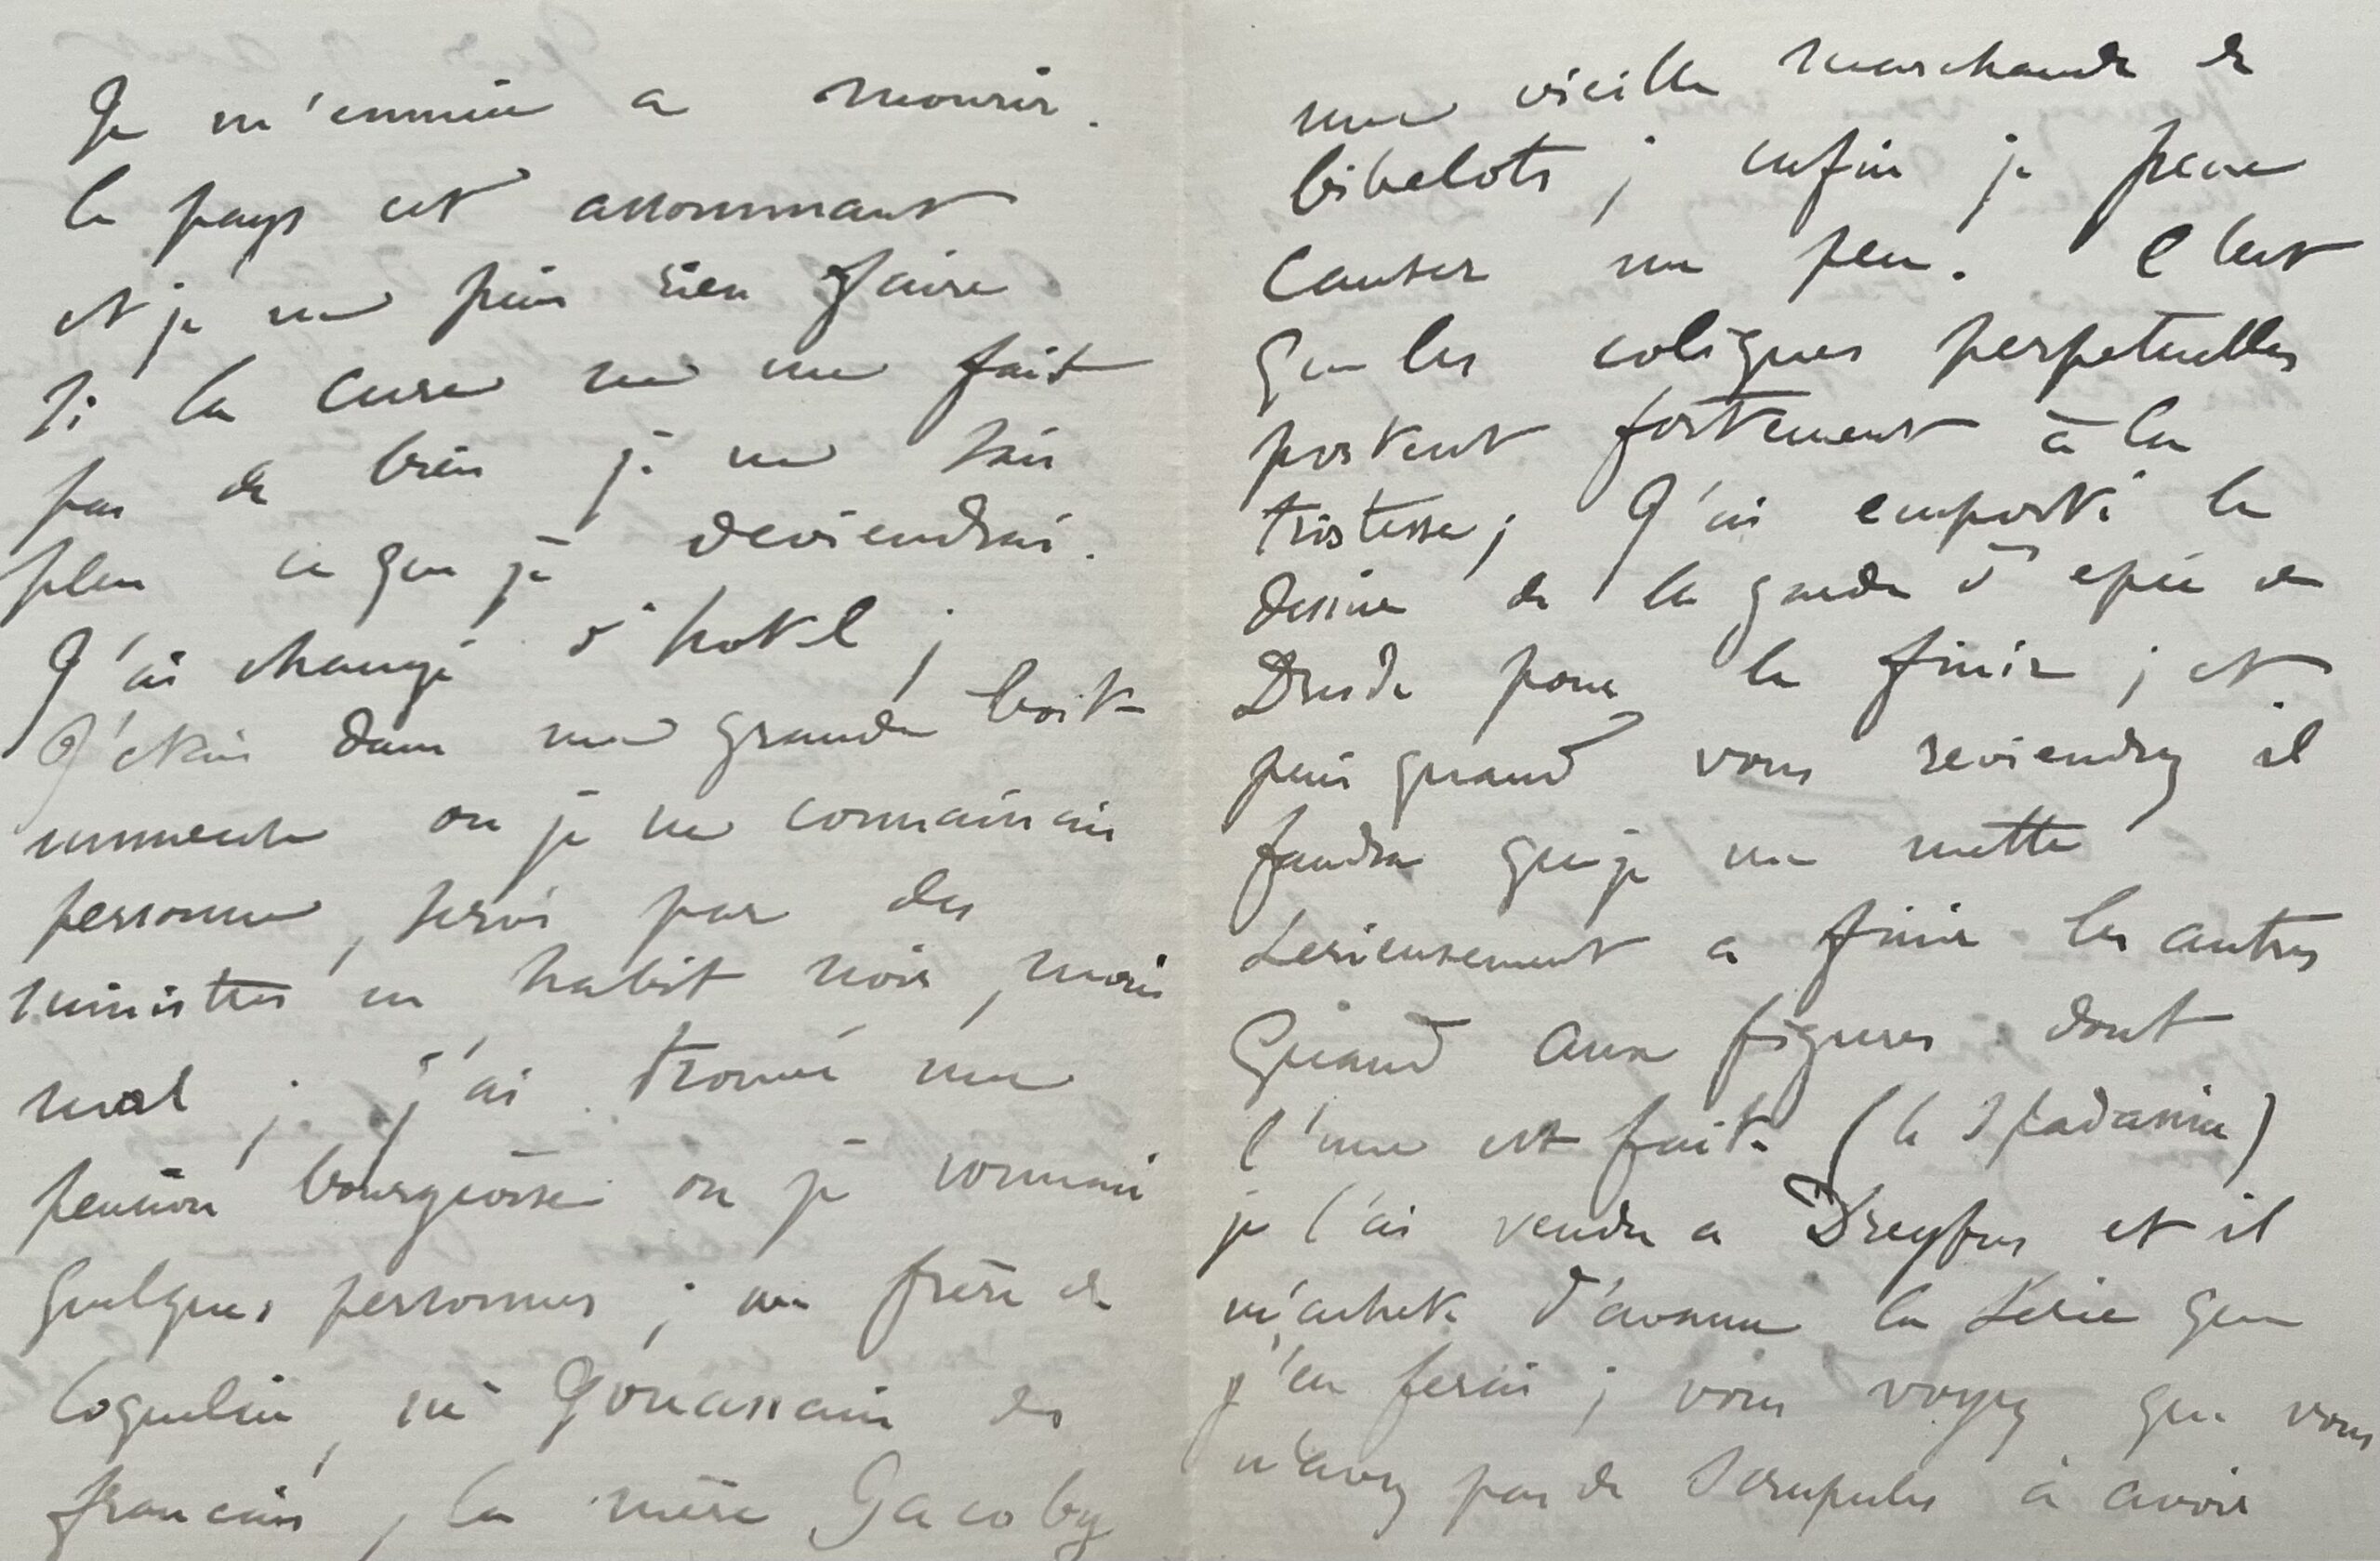 Je m'ennuie a mourir.
le pays est assommant
et je ne puis rien faire
si la cure ne me fait
pas de bien je ne sais
plus ce que je deviendrai.
J'ai changé d'hotel ;
J'etais dans une grande boite
immense ou je ne connaissais
personne, servi par des
ministres en habit noir, mais
mal ; j'ai trouvé une
pension bourgeoise ou je connais
quelques personnes ; un frère de
Coquelin, un Gouassain des
francais, la mère Jacoby
une vieille marchande de
bibelots ; enfin je peux
causer un peu. C'est
que les coliques perpetuelles
portent fortement à la
tristesse ; J'ai emporté le
dessin de la garde d'epée de
pour la finir ; et
puis quand vous reviendrez il
faudra que je me mette
serieusement a finir les autres
Quand aux figures dont
l'une est faite (le Spadassin)
je l'ai vendu a Dreyfus et il
m'achete d'avance la serie que
j'en ferai ; vous voyez que vous
n'avez pas de scrupules à avoir